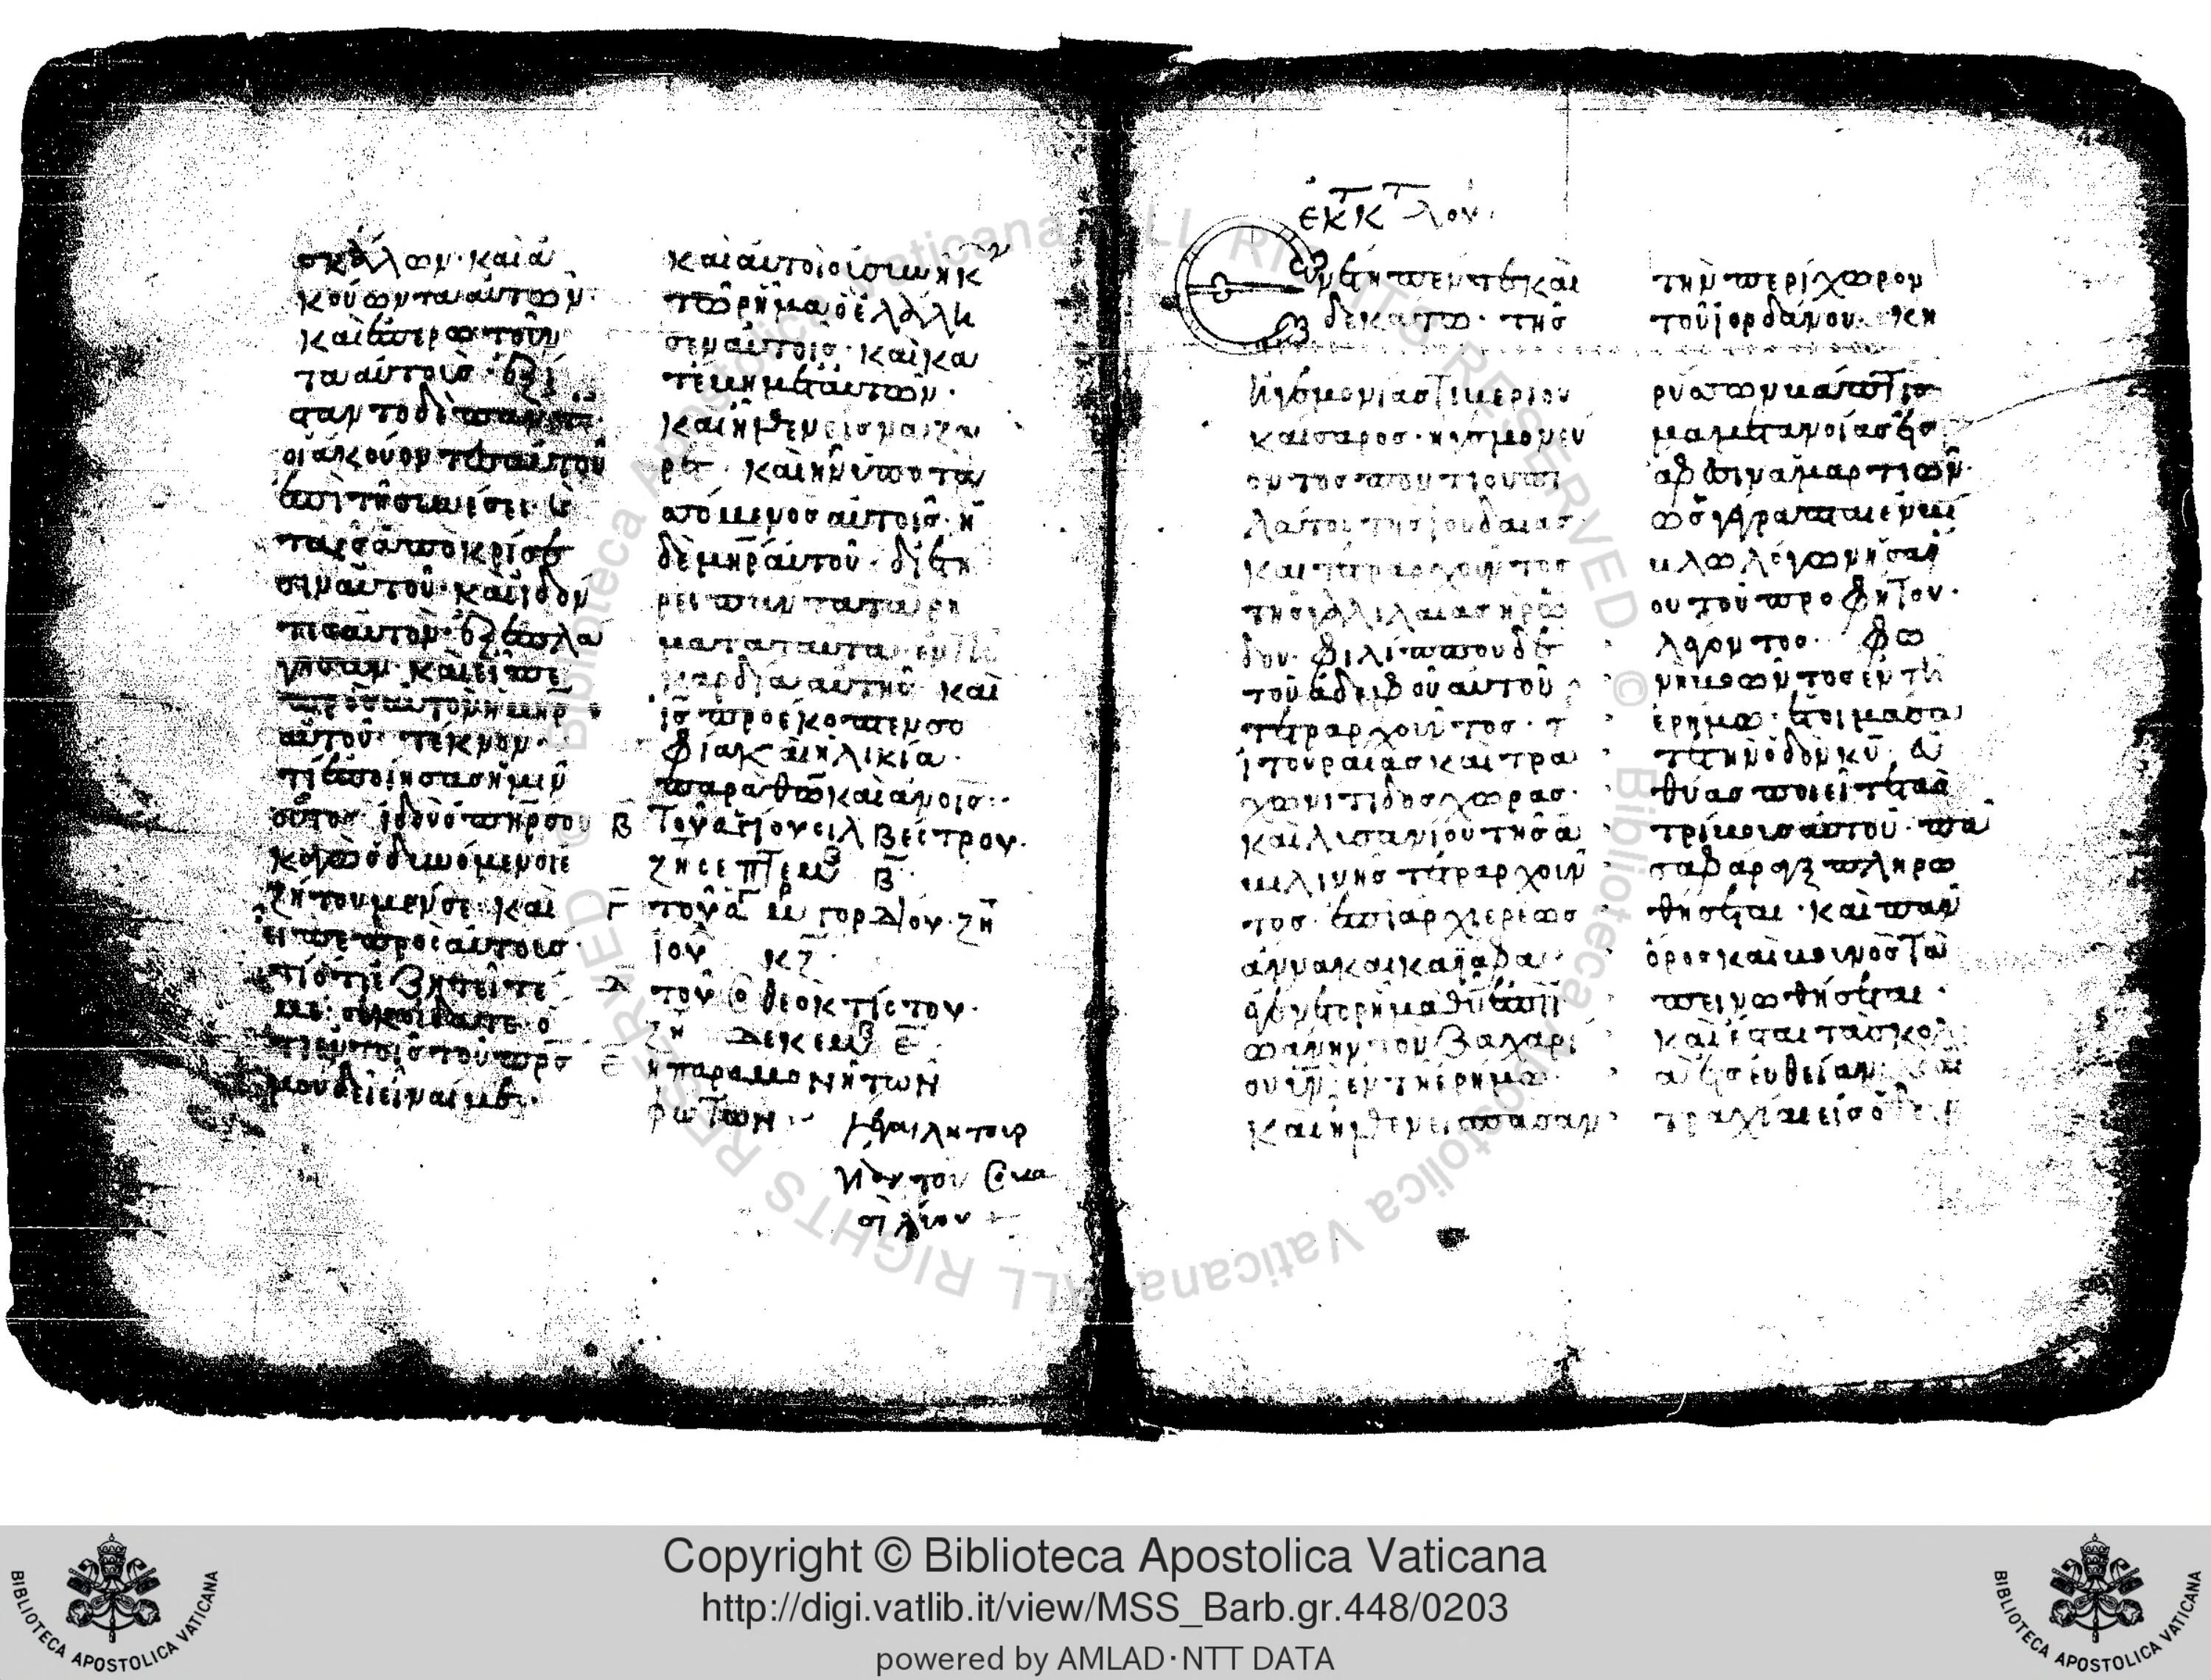 σκάλων· καὶ ἀ
κούοντα αὐτῶν·
καὶ ἐπερωτοῦν
τα αὐτοὺς· ἐξί
σταντο δὲ πάντες
οἱ ἀκούοντες αὐτοῦ
ἐπὶ τῆ συνέσει· καὶ
ταῖς ἀποκρίσε
σιν αὐτοῦ· καὶ ἰδόν
τες αὐτὸν· ἐξεπλά
γησαν· καὶ εἶπε
πρὸς αὐτὸν ἡ μηρ
αὐτοῦ· τέκνον·
τί ἐποίησας ἡμῖν
οὕτως ἰδοὺ ὁ πηρ σου
κἀγὼ ὀδυνόμενοι ἐ
ζητοῦμέν σε· καὶ
εἶπε πρὸς αὐτούς·
τί ὅτι ἐζητεῖτέ
με· οὐκ οἴδατε ὁ
τι ἐν τοῖς τοῦ πρς
μου δεῖ εἶναί με·
καὶ αὐτοὶ οὐ συνῆκαν
τὸ ρῆμα ὃ ἐλάλη
σεν αὐτοῖς· καὶ κα
τέβη μετ' αὐτῶν·
καὶ ἦλθεν εἰς ναζα
ρέτ· καὶ ἦν ὑποτα
σσόμενος αὐτοῖς· ἡ
δὲ μηρ αὐτοῦ· διετή
ρει πάντα τὰ ρή
ματα ταῦτα· ἐν τῆ
καρδία αὐτῆς· καὶ
ις προέκοπτεν σο
φία κ ηλικία·
παρὰ θω καὶ ἀνοις··
Β Τοῦ ἁγίου σιλβέστρου·
ζη σεπτεμ Β
Γ τοῦ ἁγ μ γορδίου· ζη
ιου κζ
Δ τοῦ ὁ θεοκτίστου·
ζη δεκεμβ Ε
Ε ἡ παραμονὴ τῶν
φώτων·
εκ τ κ τ λου·
Ἐν ἔτη πέντε καὶ
δεκάτω· τῆς
ἡγεμονίας τιβερίου
καίσαρος· ἡγεμονεύ
οντος ποντίου πι
λάτου τῆς ἰουδαίας·
καὶ τετραρχοῦντος
τῆς γαλιλαίας ἡρώ
δου· φιλίππου δὲ
τοῦ ἀδελφοῦ αὐτοῦ
τετραρχοῦντος· τ
ἰτουραίας καὶ τρα
χωνίτιδος χώρας·
καὶ λισανίου τῆς ἀ
βιλινῆς τετραρχοῦν
τος· ἐπὶ ἀρχιερέως
ἄννα καὶ καϊάφα·
ἐγένετο ρῆμα θυ ἐπὶ
ἰωάννην τοῦ ζαχαρί
ου υν· ἐν τῆ ἐρήμω·
καὶ ἦλθεν εἰς πᾶσαν
τὴν περίχωρον
τοῦ ἰορδάνου· κη
ρύσσων βάπτισ
μα μετανοίας εἰς
ἄφεσιν ἁμαρτιῶν·
ὡς γέγραπται ἐν βί
βλω λόγων ἠσαΐ
ου τοῦ προφήτου·
λέγοντος· φω
νὴ βοῶντος ἐν τῆ
ἐρήμω· ἑτοιμάσα
τε τὴν ὁδὸν κυ· εὐ
θείας ποιεῖτε τὰς
τρίβους αὐτοῦ· πᾶ
σα φάραγξ πληρω
θήσεται· καὶ πᾶν
ὄρος καὶ βουνὸς τα
πεινωθήσεται·
καὶ ἔσται τὰ σκολι
ὰ εἰς εὐθεῖαν· καὶ
Copyright © Biblioteca Apostolica Vaticana
http://digi.vatlib.it/view/MSS_Barb.gr.448/0203
powered by AMLAD·NTT DATA
BIBLIOTECA APOSTOLICA VATICANA
BIBLIOTECA APOSTOLICA VATICANA